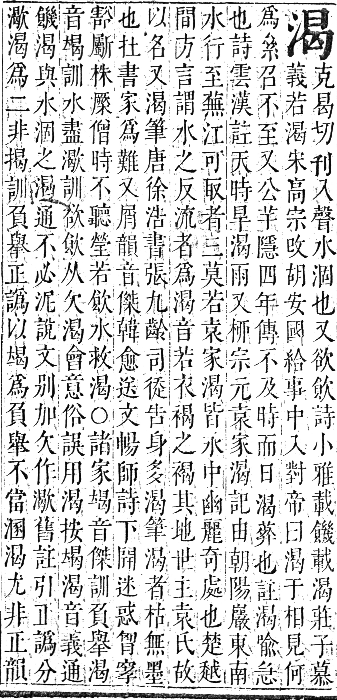 渴
克曷切刊入聲水涸也又欲飮詩小雅載饑載渴莊子慕
義若渴宋高宗攺胡安國給事中入對帝曰渴于相見何
爲絫召不至又公羊隱四年傳不及時而日渴葬也註渴喻急
也詩雲漢註天時旱渴雨又柳宗元袁家渴記由朝陽巖東南
水行至蕪江可取者三莫若袁家渴皆永中幽麗奇處也楚越
間方言謂水之反流者爲渴音若衣褐之褐其地世主袁氏故
以名又渴筆唐徐浩書張九齡司徒告身多渴筆渴者枯無墨
也在書家爲難又屑韻音傑韓愈送文暢師詩下開迷惑胷窂
豁斸株橛僧時不聽瑩若飮水救渴○諸家竭音傑訓負舉渴
音竭訓水盡㵣訓欲飮从欠渴會意俗誤用渴按竭渴音義通
饑渴與水涸之渴通不必泥說文別加欠作㵣舊註引正譌分
㵣渴爲二非揭訓負擧正譌以竭爲負舉不當溷渴尤非正韻